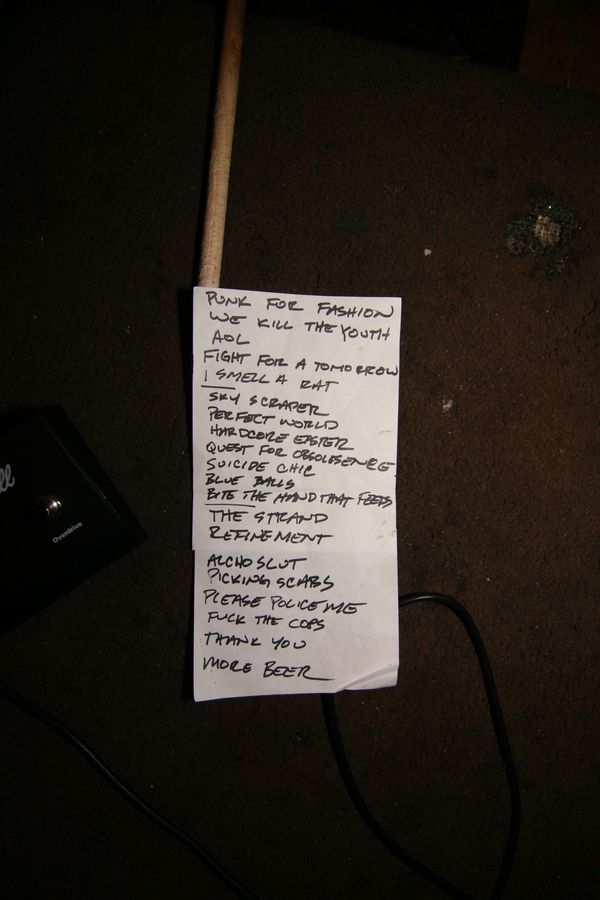 PUNK FOR FASHION
WE KILL THE YOUTH
AOL
FIGHT FOR A TOMORROW
I SMELL A RAT
SKY SCRAPER
PERFECT WORLD
HARDCORE EASTER
QUEST FOR OBSOLESENCE
SUICIDE CHIC
BLUE BALLS
BITE THE HAND THAT FEEDS
THE STRAND
REFINEMENT
ALCHOSLUT
PICKING SCABS
PLEASE POLICE ME
FUCK THE COPS
THANK YOU
MORE BEER
Overdrive